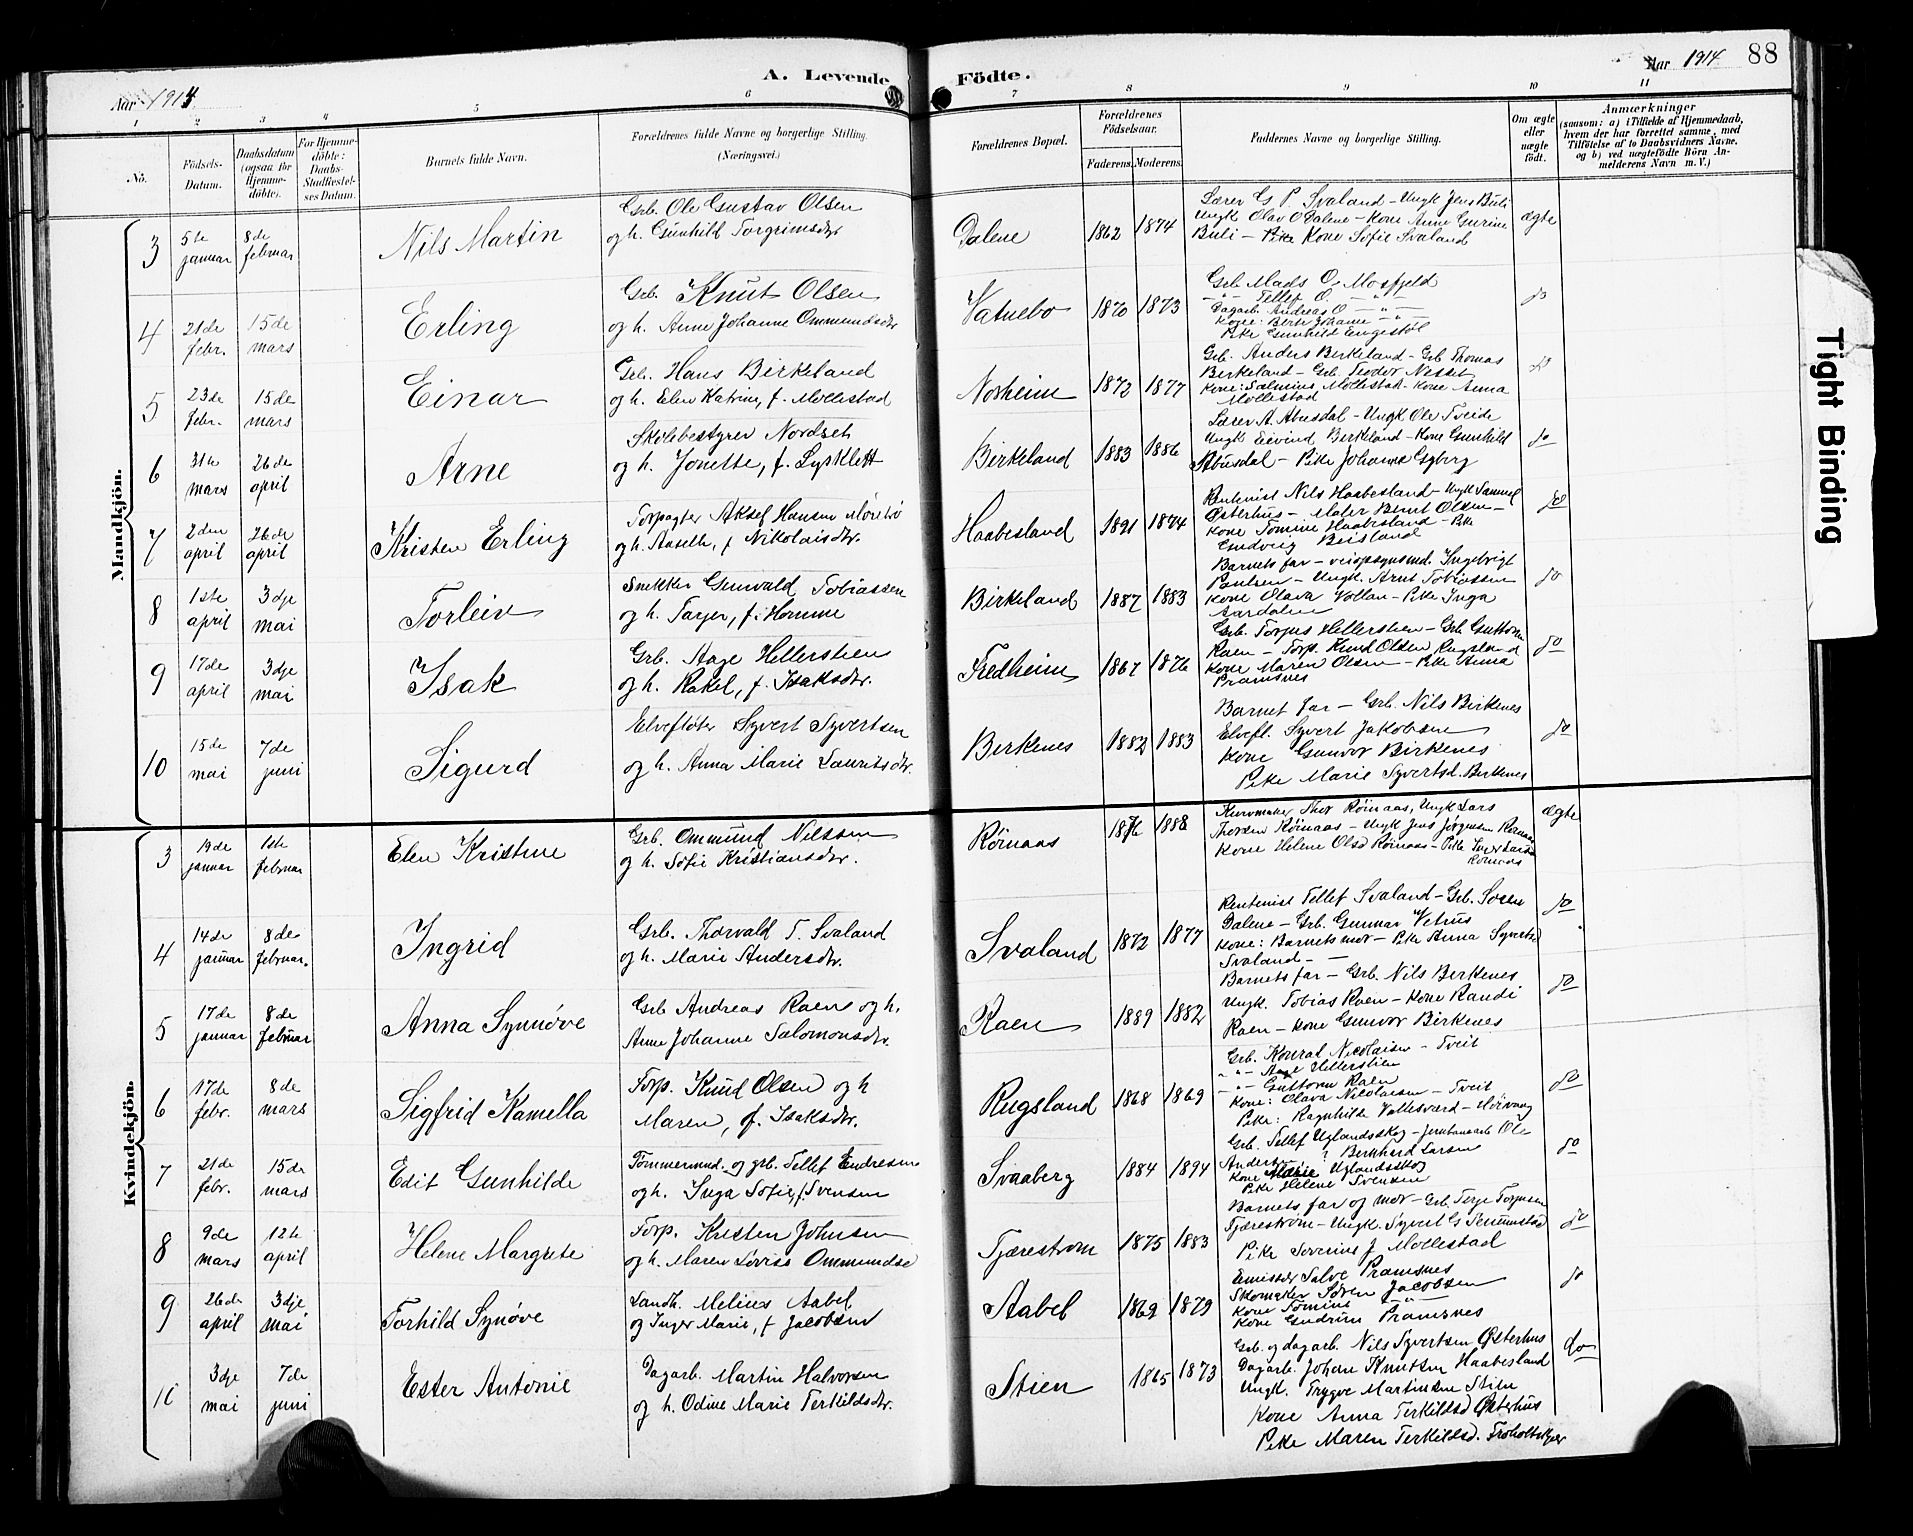 Aar 1914
A. Levende
Födte.
Aar 1914
88
1 2 3 4 5 6 7 8 9 10 11
No.
Födsels-Datum.
Daabsdatum (ogsaa for Hjemme-döbte).
For Hjemme-döbte: Daabs-Stadfæstel-ses Datum.
Barnets fulde Navn.
Forældrenes fulde Navne og borgerlige Stilling.
(Næringsvei.)
Forældrenes Bopæl.
Forældrenes Födselsaar.
Faderens. Moderens.
Faddernes Navne og borgerlige Stilling.
Om ægte eller uægte födt.
Anmærkninger
(saasom: a) i Tilfælde af Hjemmedaab, hvem der har forrettet samme, med Tilföielse af to Daabsvidners Navne, og b) ved uægtefödte Börn An-melderens Navn m. V.)
Mandkjön.
3 5te januar 8de februar Nils Martin Grb. Ole Gustav Olsen
og h. Gunhild Torgrimsdtr
Dalene 1862 1874
Lærer G. P. Svaland - Ungk Jens Buli
Ungk Olav O Dalene - Kone Anne Gurine
Buli - Pike Kone Sofie Svaland
ægte
4 21de febr. 15de mars Erling Grb. Knut Olsen
og h. Anne Johanne Ommundsdtr
Vatnebo 1870 1873
Grb. Mads O. Mosfjeld
-"- Tellef O. -"-
Dagarb. Andreas O -"-
Kone: Berte Johanne -"-
Pike Gunhild Engestøl
do
5 23de febr. 15de mars Einar Grb. Hans Birkeland
og h. Elen Katrine, f. Mollestad
Norheim 1872 1877
Grb. Anders Birkeland - Grb Thomas
Birkeland - Grb. Teodor Nesset
Kone: Salmine Mollestad - Kone Anna
Mollestad
do
6 31te mars 26de april Arne Skolebestyrer Nordset
og h. Jonette, f. Lysklett
Birkeland 1883 1886
Lærer A. Abusdal - Ungk Ole Tveide
Ungk Eivind Birkeland - Kone Gunhild
Abusdal - Pike Johanna Egberg
do
7 2den april 26de april Kristen Erling Forpagter Aksel Hansen
og h. Aaselle, f Nikolaisdtr.
Haabesland 1891 1874
Rentenist Nils Haabesland - Ungk Samuel
Østerhus - Maler Bernt Olsen -
Kone Tomine Haabesland - Pike
Gudveig Beisland
do
8 1ste april 3dje mai Torleiv Snekker Gunvald Tobiassen
og h. Tarjer, f. Homme
Birkeland 1887 1883
Barnets far - veiopsynsmd. Ingebrigt
Paulsen - Ungk. Arnt Tobiassen
Kone Olava Vollan - Pike Inga
Aardalen
do
9 17de april 3dje mai Isak Grb. Aage Hellerstien
og h. Rakel, f. Isaksdtr.
Fredheim 1867 1876
Grb. Torjus Hellerstien - Grb Guttorm
Raen - Forp. Knud Olsen Rugsland
Kone Maren Olsen - Pike Anna
Pramsnes
do
10 15de mai 7de juni Sigurd Elvefløter Syvert Syvertsen
og h. Anna Marie Lauritsdtr.
Birkenes 1882 1883
Barnet far - Grb. Nils Birkenes
Elvefl. Syvert Jakobsen
Kone Gunvor Birkenes
Pike Marie Syvertsd. Birkenes
do
Kvindekjön.
3 19de januar 1ste februar Elen Kristine Grb. Ommund Nilssen
og h. Sofie Kristiansdtr.
Rømaas 1876 1888
Thor Rømaas, Ungk Lars
Thorsen Rømaas - Ungk Jens Jørgensen Rømaas
Kone Helene Olsd Rømaas - Pike Inger Larsd
Rømaas
ægte
4 14de januar 8de februar. Ingrid Grb. Thorvald T. Svaland
og h. Marie Andersdtr.
Svaland 1872 1877
Rentenist Tellef Svaland - Grb. Søren
Dalene - Grb. Gunnar Vetrus
Kone: Barnets mor - Pike Anna Syvertsd
Svaland -
do
5 17de januar 8de februar Anna Synnøve Grb Andreas Raen og h.
Anne Johanne Salomonsdtr.
Raen 1889 1882
Barnets far - Grb. Nils Birkenes
Ungk. Tobias Raen - Kone Randi
Raen - Kone Gunvor Birkenes
do
6 17de febr. 8de mars Sigfrid Kamella Forp. Knud Olsen og h
Maren, f. Isaksdtr.
Rugsland 1868 1869
Grb. Konrad Nicolaisen - Tveit
-"- Aage Hellerstien
-"- Guttorm Raen
Kone: Olava Nicolaisen - Tveit
Pike: Ragnhilde Vallesværd - Hørvang
do
7 21de febr. 15de mars Edit Gunhilde Tømmermnd. og grb. Tellef Endresen
og h. Inga Sofie, f. Svensen
Svaaberg 1884 1894
Grb. Tellef Uglandsskog - Jernbanearb Ole
Andersen, Bernhard Larsen
Kone Marie Uglandsskog
Pike Helene Svensen
do
8 9de mars 12te april Helene Margrete Forp. Kristen Johnsen
og h. Maren Lovise Ommundsd
Tjærestrøm 1875 1883
Barnets far og mor - Grb. Terje Torjussen
Tjærestrøm - Ungk. Syvert G
Pike Severine J Mollestad
do
9 26de april 3dje mai Torhild Synøve Landh. Melius Aabel
og Inger Marie, f Jacobsen
Aabel 1869 1879
Emissær Salve Pramsnes
Skomaker Søren Jacobsen
Kone Tomine -"-
Kone Gudrun Pramsnes
do
10 3dje mai 7de juni Ester Antonie Dagarb. Martin Halvorsen
og h. Odine Marie Terkildsdtr.
Stien 1865 1873
Grb. og dagarb. Nils Syvertsen Østerhus
Dagarb. Johan Knutsen Haabesland
Ungk. Trygve Martinsen Stien
Kone Anna Terkildsd Østerhus
Pike Maren Terkildsd. Froholtskjer
do
Tight Binding